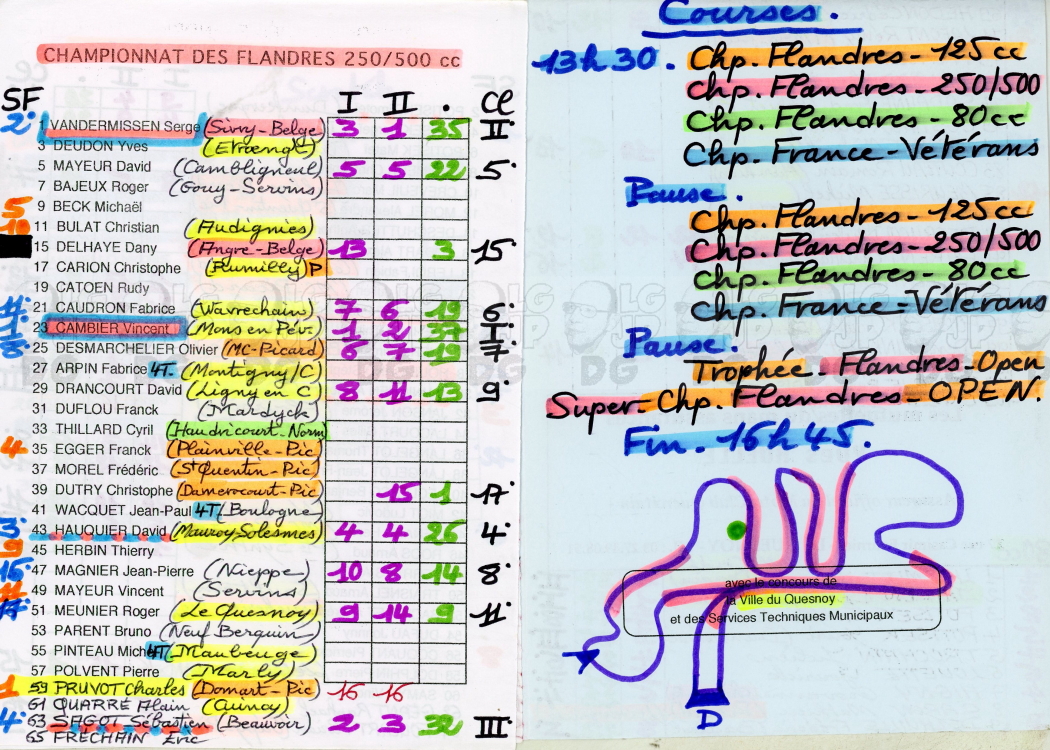 CHAMPIONNAT DES FLANDRES 250/500 cc
SF I II . Cl
2° 1 VANDERMISSEN Serge (Sivry-Belge) 3 1 35 II°
3 DEUDON Yves (Etroengt)
5 MAYEUR David (Cambligneul) 5 5 22 5°
7 BAJEUX Roger (Gouy-Servins)
5 9 BECK Michaël
10 11 BULAT Christian (Audignies)
15 DELHAYE Dany (Angre-Belge) 13 3 15°
17 CARION Christophe (Rumilly) P
19 CATOEN Rudy
21 CAUDRON Fabrice (Wavrechain) 7 6 19 6°
1° 23 CAMBIER Vincent (Mons en Pév.) 1 2 37 I°
25 DESMARCHELIER Olivier (MC-Picard) 6 7 19 7°
27 ARPIN Fabrice 4T. (Montigny/C)
29 DRANCOURT David (Ligny en C) 8 11 13 9°
31 DUFLOU Franck (Mardyck)
33 THILLARD Cyril (Haudricourt-Norm)
4 35 EGGER Franck (Plainville-Pic)
37 MOREL Frédéric (St Quentin-Pic)
39 DUTRY Christophe (Damerocourt-Pic) 15 1 17°
41 WACQUET Jean-Paul 4T. (Boulogne)
3° 43 HAUQUIER David (Mauroy Solesmes) 4 4 26 4°
9 45 HERBIN Thierry
47 MAGNIER Jean-Pierre (Nieppe) 10 8 14 8°
49 MAYEUR Vincent (Servins)
51 MEUNIER Roger (Le Quesnoy) 9 14 9 11°
53 PARENT Bruno (Neuf Berquin)
55 PINTEAU Michel 4T. (Maubeuge)
57 POLVENT Pierre (Marly)
1 59 PRUVOT Charles (Domart-Pic) 16 16
61 QUARRÉ Alain (Quincy)
4° 63 SAGOT Sébastien (Beauvoir) 2 3 32 III°
65 FRECHAIN Eric
Courses.
13h30. Chp. Flandres - 125 cc
Chp. Flandres - 250/500
Chp. Flandres - 80 cc
Chp. France - Vétérans
Pause.
Chp. Flandres - 125 cc
Chp. Flandres - 250/500
Chp. Flandres - 80 cc
Chp. France - Vétérans
Pause.
Trophée - Flandres - Open
Super-Chp. Flandres - OPEN.
Fin. 16h45.
avec le concours de
la Ville du Quesnoy
et des Services Techniques Municipaux
D